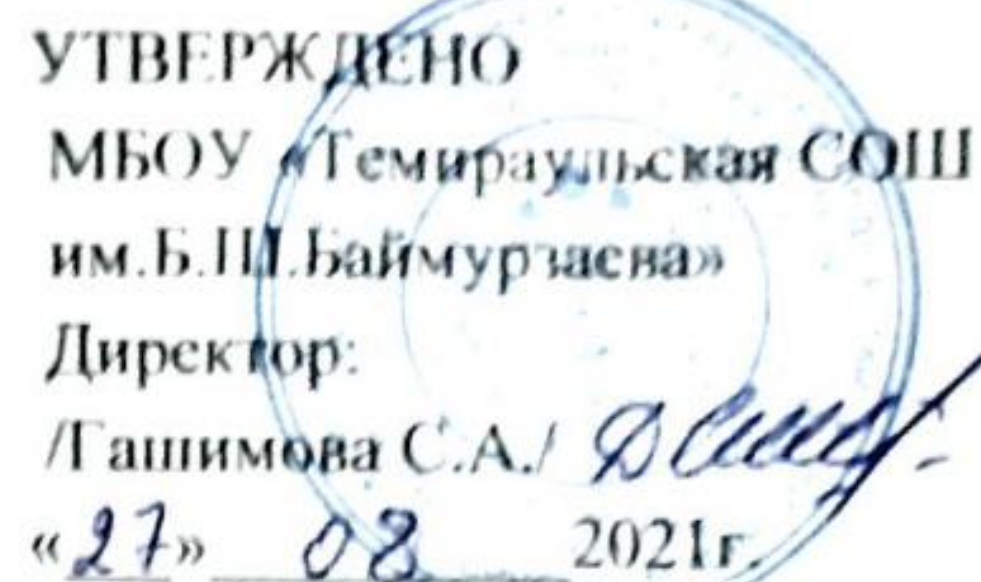 УТВЕРЖДЕНО
МБОУ «Темираульская СОШ
им.Б.Ш.Баймурзаева»
Директор:
/Гашимова С.А./
«27» 08 2021г.